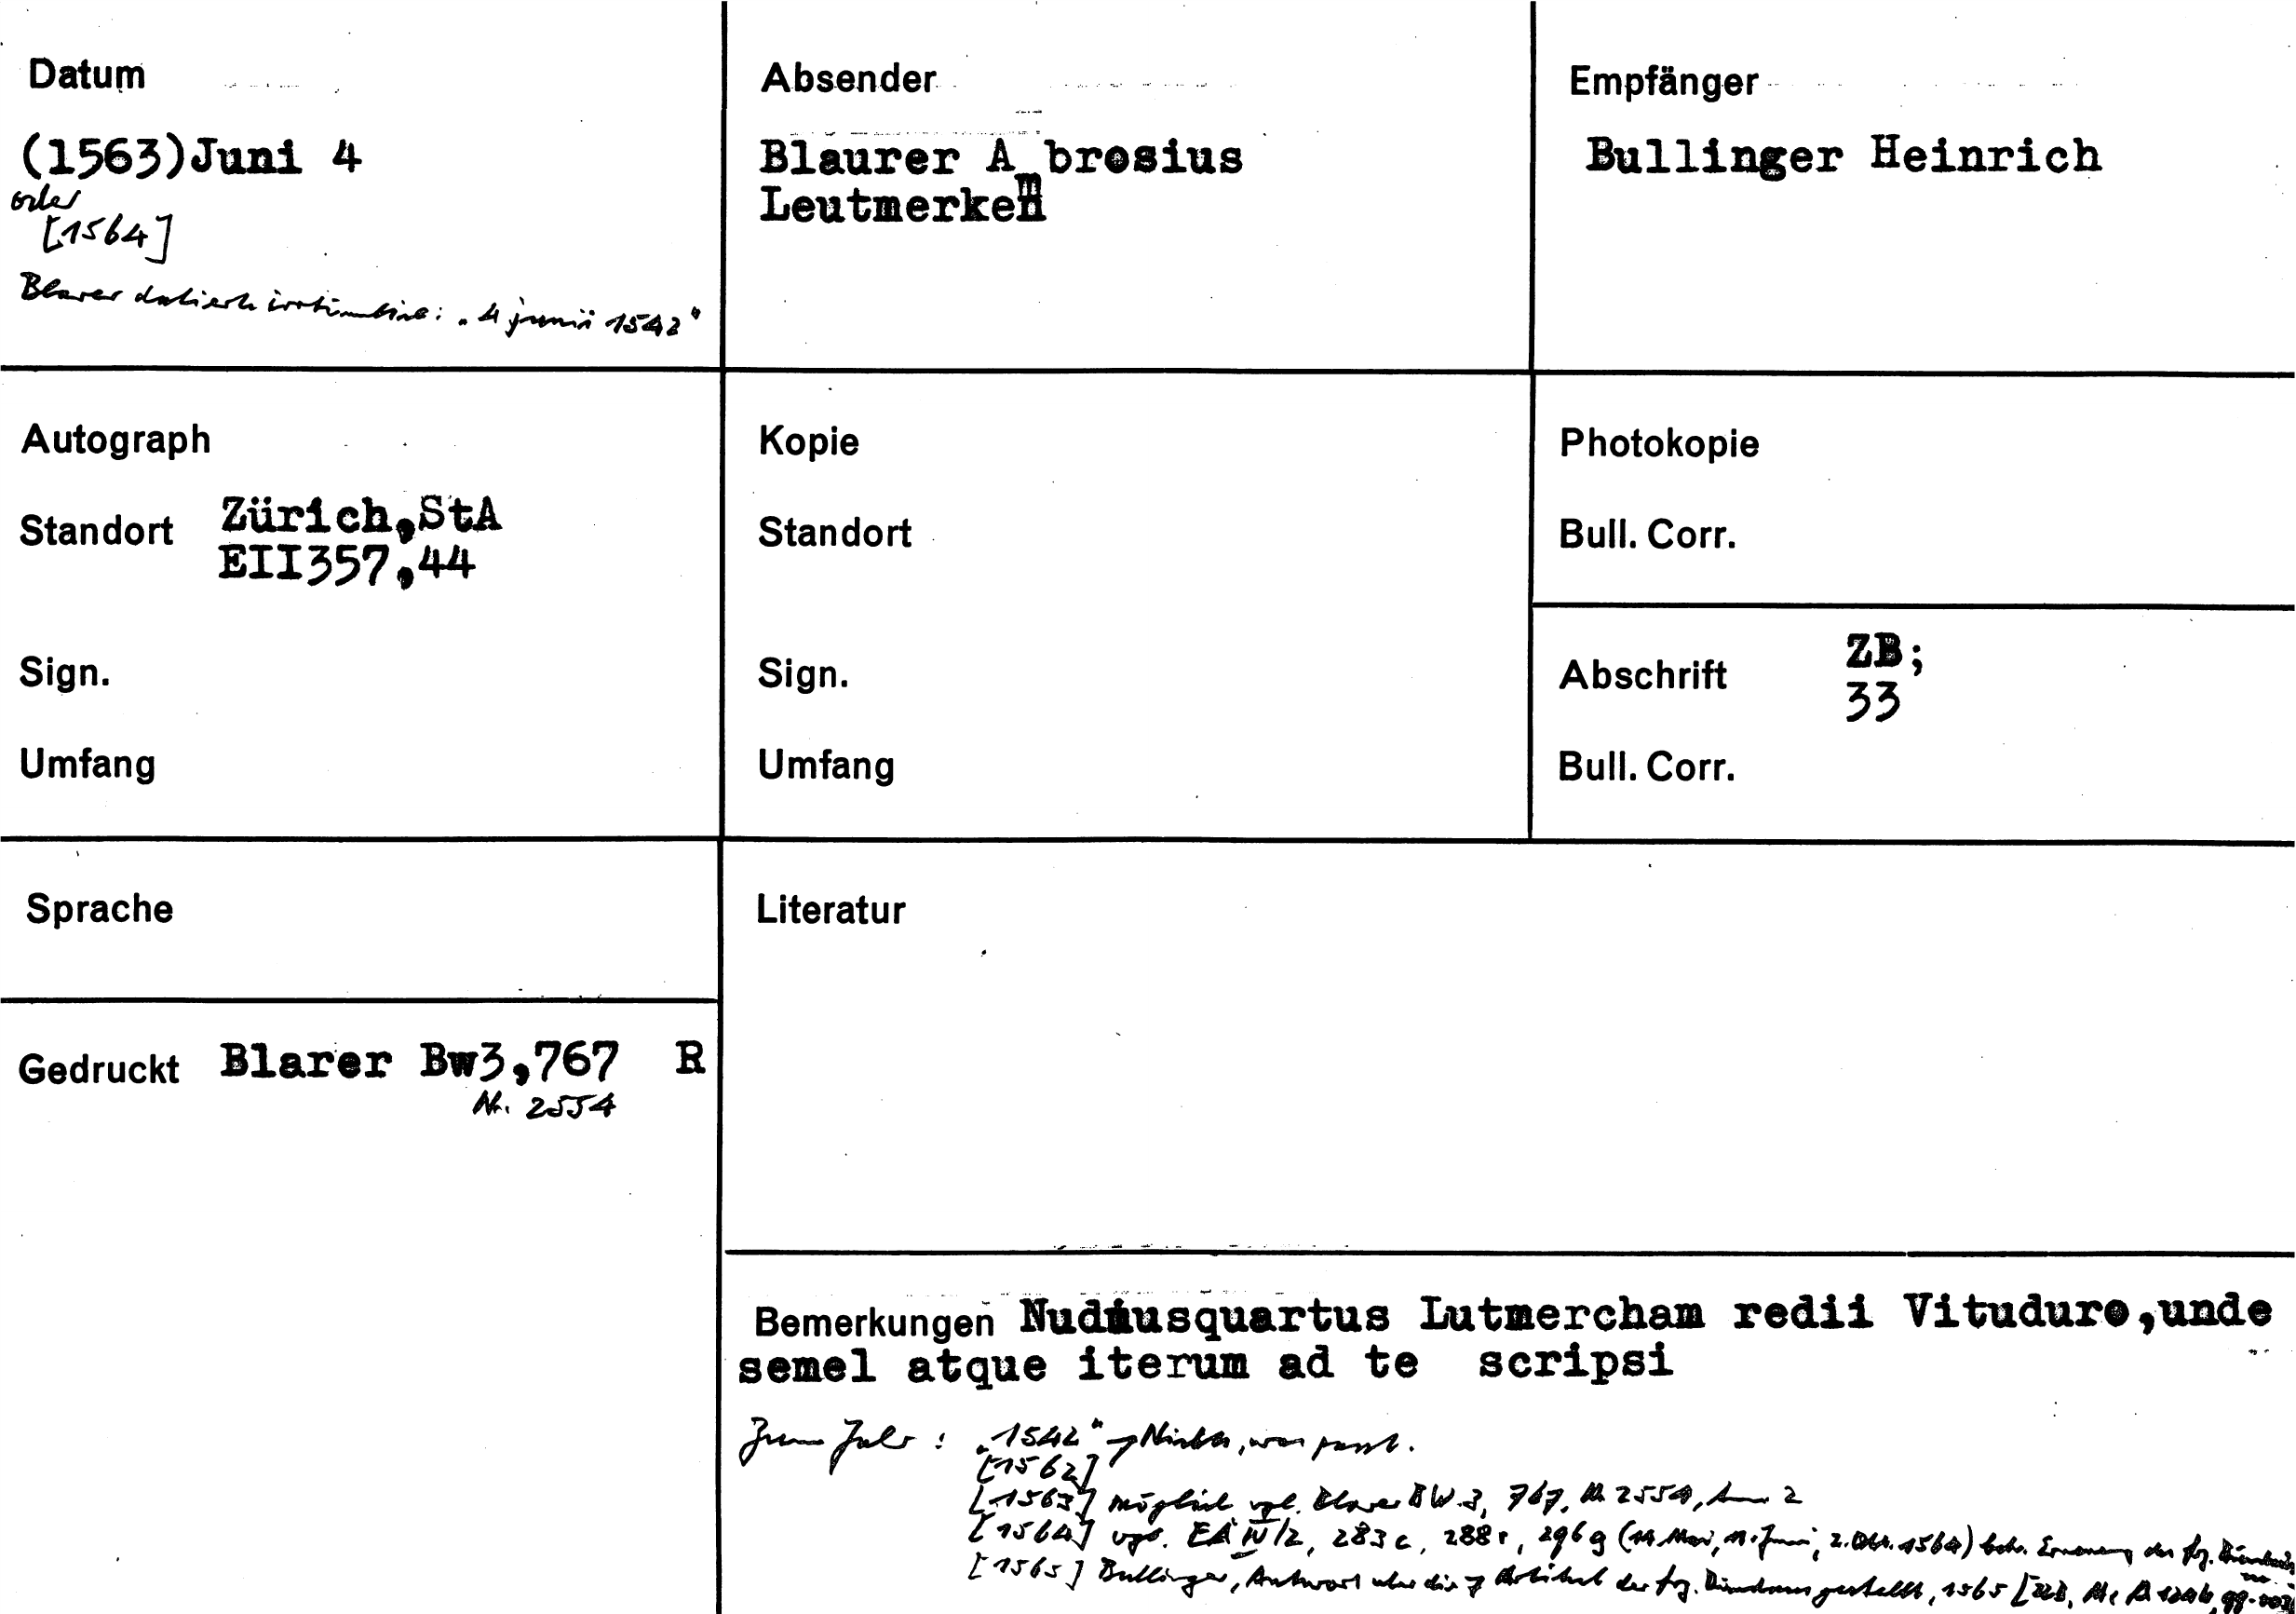 Datum
(1563)Juni 4
oder
[1564]
Blarer datiert irrtümlich: „4 junii 1542"
Absender
Blaurer A brosius
Leutmerken
Empfänger
Bullinger Heinrich
Autograph
Standort Zürich,StA
EII357,44
Sign.
Umfang
Kopie
Standort
Sign.
Umfang
Photokopie
Bull. Corr.
Abschrift ZB;
33
Bull. Corr.
Sprache
Gedruckt Blarer Bw3,767 R
Nr. 2554
Literatur
Bemerkungen Nudiusquartus Lutmercham redii Vituduro,unde
semel atque iterum ad te scripsi
Zum Jahr: „1542" → Nichts, was passt.
[1562]
[1563] möglich vgl. Blarer BW 3, 767, Nr. 2554, Anm 2
[1564] vgl. EA IV/2, 283 c, 288 r, 296 g (14. Mai, 11. Juni, 2. Okt. 1564) betr. Erneuerung des frz.
[1565] Bullinger, Antwort uber die 7 Artikel der frz. gestellt, 1565 [ZB,